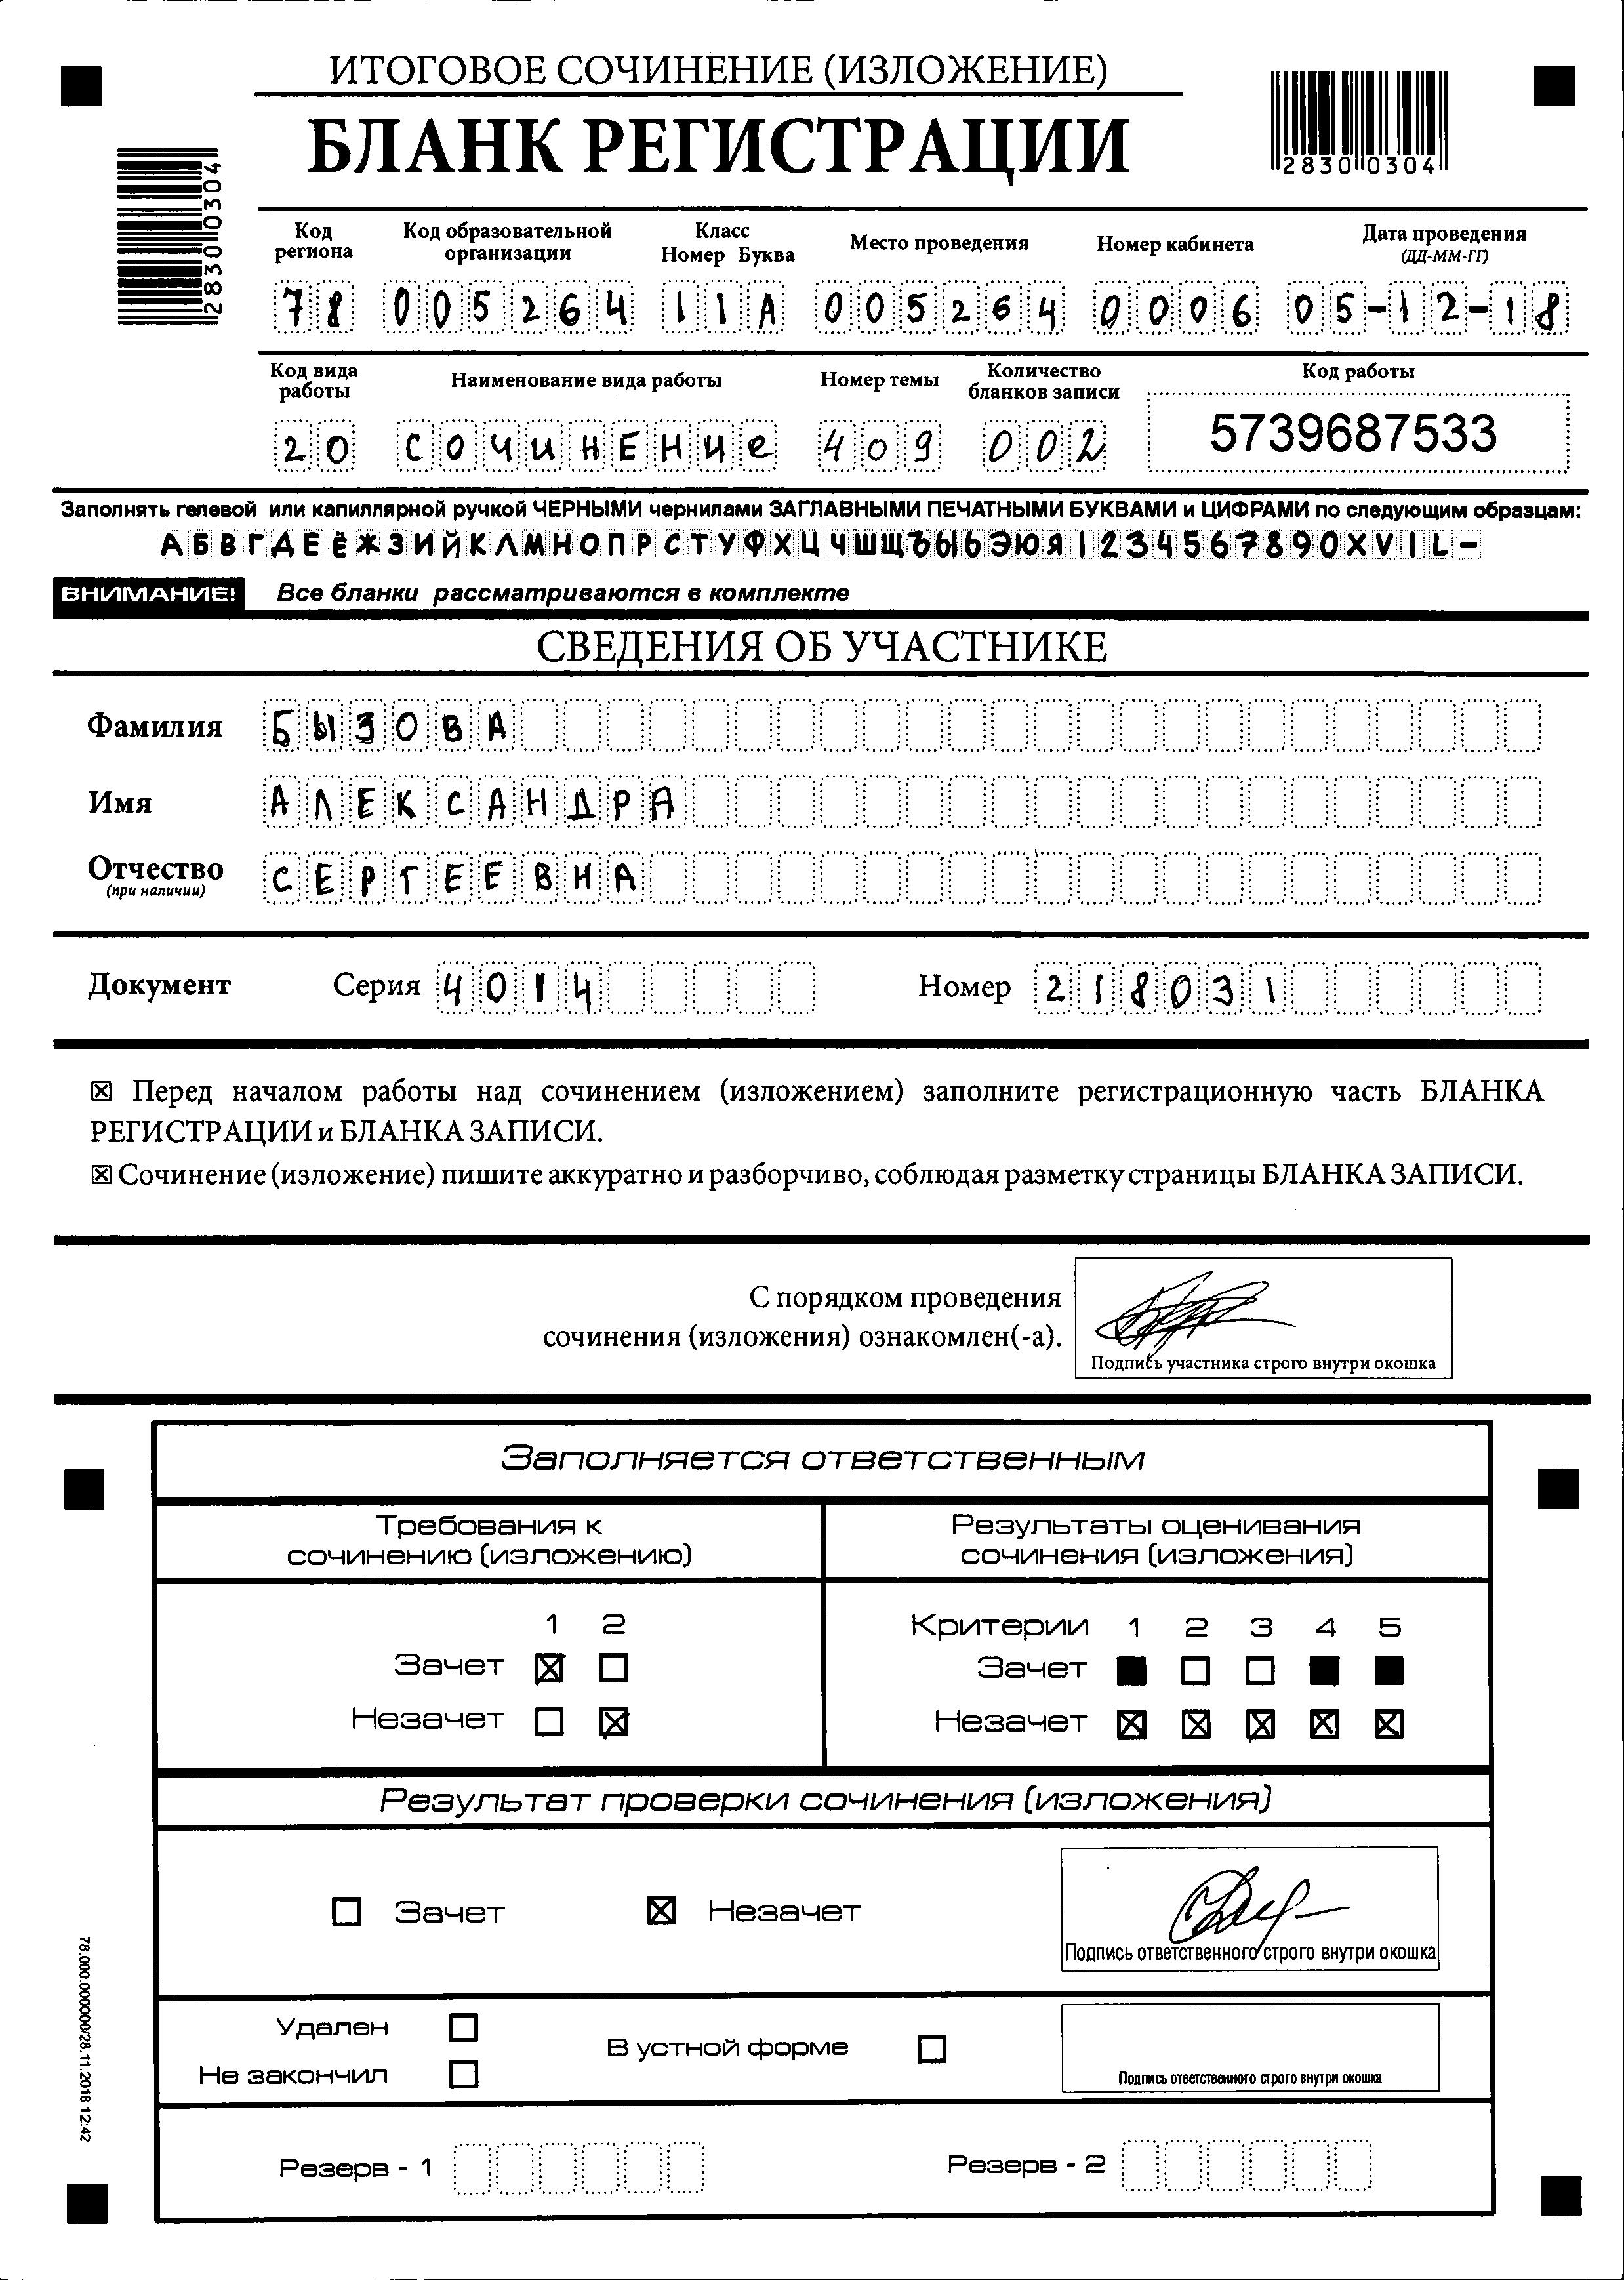 ИТОГОВОЕ СОЧИНЕНИЕ (ИЗЛОЖЕНИЕ)
БЛАНК РЕГИСТРАЦИИ
2830 0304
2830 0304
Код региона
Код образовательной организации
Класс
Номер Буква
Место проведения
Номер кабинета
Дата проведения
(ДД-ММ-ГГ)
78 005264 11А 005264 0006 05-12-18
Код вида работы
Наименование вида работы
Номер темы
Количество бланков записи
Код работы
20 СОЧИНЕНИе 409 002 5739687533
Заполнять гелевой или капиллярной ручкой ЧЕРНЫМИ чернилами ЗАГЛАВНЫМИ ПЕЧАТНЫМИ БУКВАМИ и ЦИФРАМИ по следующим образцам:
АБВГДЕЁЖЗИЙКЛМНОПРСТУФХЦЧШЩЪЫЬЭЮЯ1234567890XVIL-
ВНИМАНИЕ! Все бланки рассматриваются в комплекте
СВЕДЕНИЯ ОБ УЧАСТНИКЕ
Фамилия БЫЗОВА
Имя АЛЕКСАНДРА
Отчество СЕРГЕЕВНА
(при наличии)
Документ Серия 4014 Номер 218031
Перед началом работы над сочинением (изложением) заполните регистрационную часть БЛАНКА
РЕГИСТРАЦИИ и БЛАНКА ЗАПИСИ.
Сочинение (изложение) пишите аккуратно и разборчиво, соблюдая разметку страницы БЛАНКА ЗАПИСИ.
С порядком проведения
сочинения (изложения) ознакомлен(-а).
Подпись участника строго внутри окошка
Заполняется ответственным
Требования к
сочинению (изложению)
Результаты оценивания
сочинения (изложения)
1 2
Зачет
Незачет
Критерии 1 2 3 4 5
Зачет
Незачет
Результат проверки сочинения (изложения)
Зачет Незачет
Подпись ответственного строго внутри окошка
Удален
Не закончил
В устной форме
Подпись ответственного строго внутри окошка
Резерв - 1 Резерв - 2
78.000.000000/28.11.2018 12:42